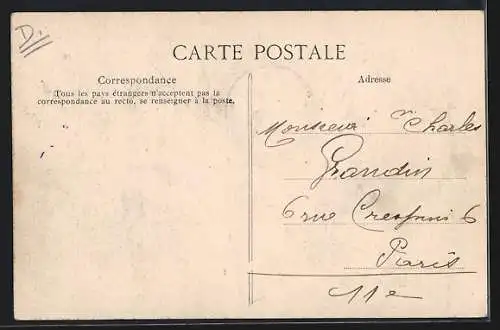 D.
CARTE POSTALE
Correspondance
Tous les pays étrangers n'acceptent pas la
correspondance au recto, se renseigner à la poste.
Adresse
Monsieur Charles
Grandin
6 rue Crespin 6
Paris
11e